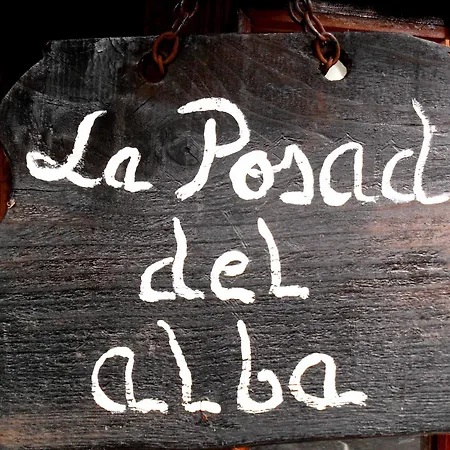 La Posad
del
alba